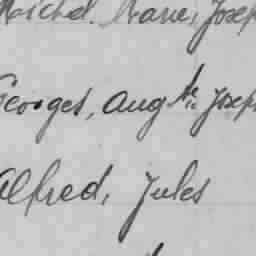 Michel, Marie, Josep
Georges, Aug te, Josep
Alfred, Jules